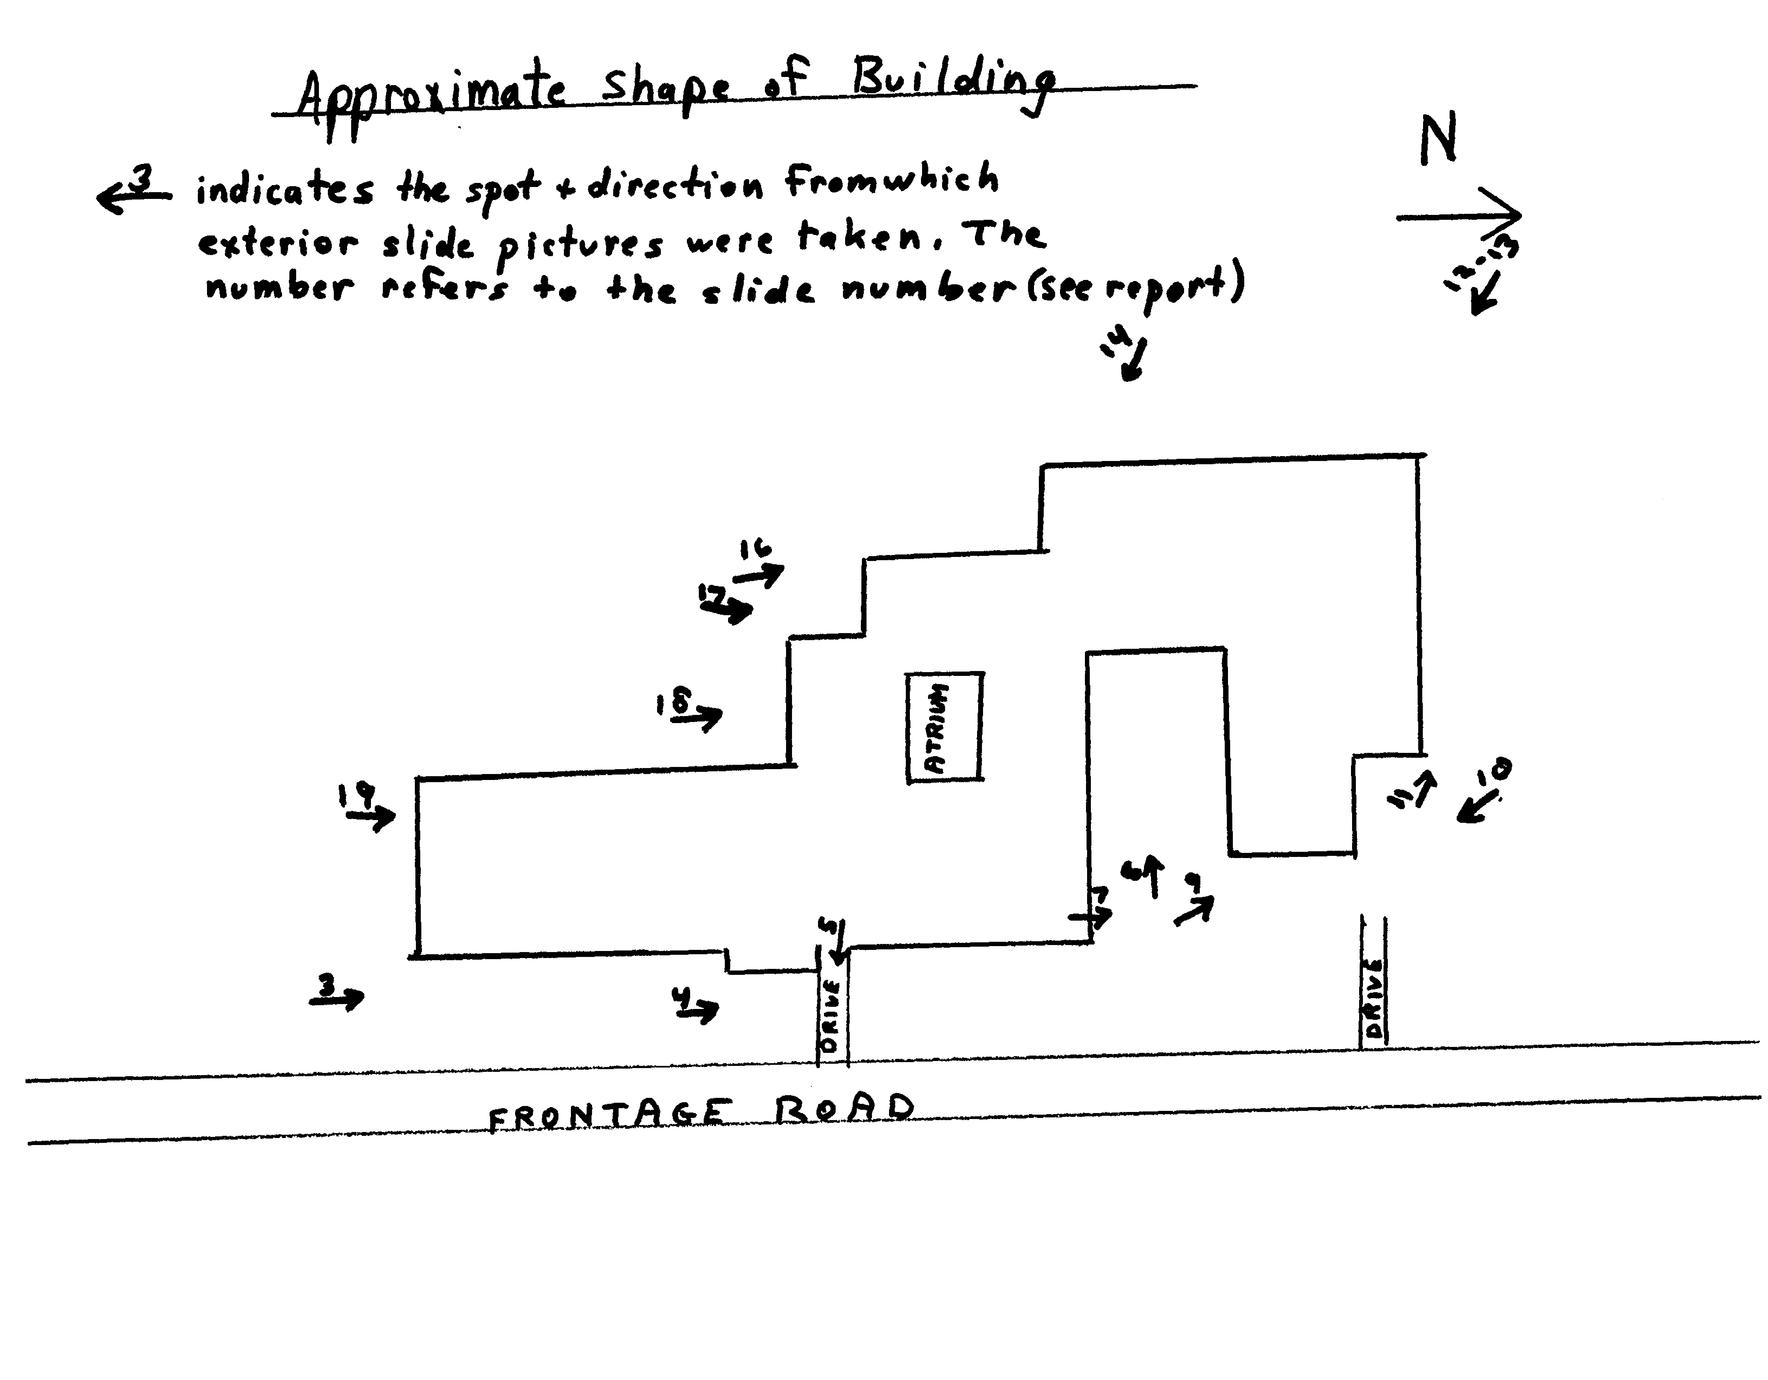 Approximate Shape of Building
N
3 indicates the spot + direction from which
exterior slide pictures were taken. The
number refers to the slide number (see report)
12-13
14
16
17
18
ATRIUM
19
10
11
6
9
7
5
3
4
DRIVE
DRIVE
FRONTAGE ROAD